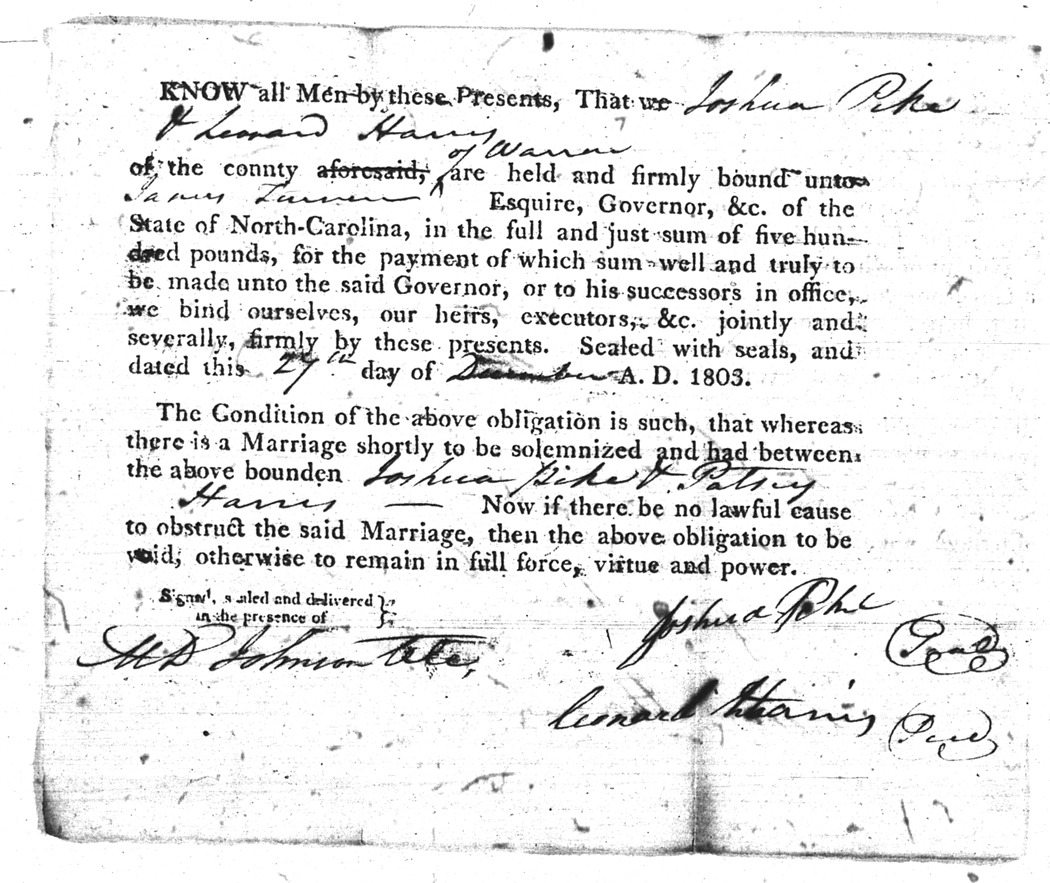 KNOW all Men by these Presents, That we Joshua Pike
& Leonard Harris
of Warren
of the county aforesaid, are held and firmly bound unto
James Turner Esquire, Governor, &c. of the
State of North-Carolina, in the full and just sum of five hun-
dred pounds, for the payment of which sum well and truly to
be made unto the said Governor, or to his successors in office,
we bind ourselves, our heirs, executors, &c. jointly and
severally, firmly by these presents. Sealed with seals, and
dated this 27th day of December A. D. 1803.
The Condition of the above obligation is such, that whereas
there is a Marriage shortly to be solemnized and had between
the above bounden Joshua Pike & Patsey
Harris — Now if there be no lawful cause
to obstruct the said Marriage, then the above obligation to be
void, otherwise to remain in full force, virtue and power.
Signed, sealed and delivered
in the presence of
Joshua Pike
M D Johnson
Leonard Harris